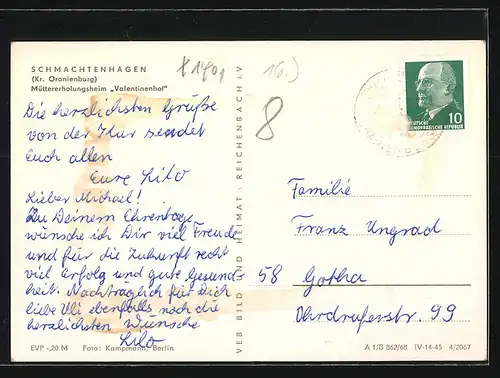 SCHMACHTENHAGEN
(Kr. Oranienburg)
Müttererholungsheim „Valentinenhof"
Die herzlichsten Grüße
von der Kur sendet
Euch allen
Eure Lilo
Lieber Michael!
Zu Deinem Ehrentage
wünsche ich Dir viel Freude
und für die Zukunft recht
viel Erfolg und gute Gesund-
heit. Nachträglich für Dich
liebe Uli ebenfalls noch die
herzlichsten Wünsche
Lilo
EVP -,20 M Foto: Kampmann, Berlin
VEB BILD UND HEIMAT · REICHENBACH I. V
16.)
8
10
DEUTSCHE
DEMOKRATISCHE REPUBLIK
Familie
Franz Ungrad
58 Gotha
Ohrdruferstr. 99
A 1/B 862/68 IV-14-45 4/2067